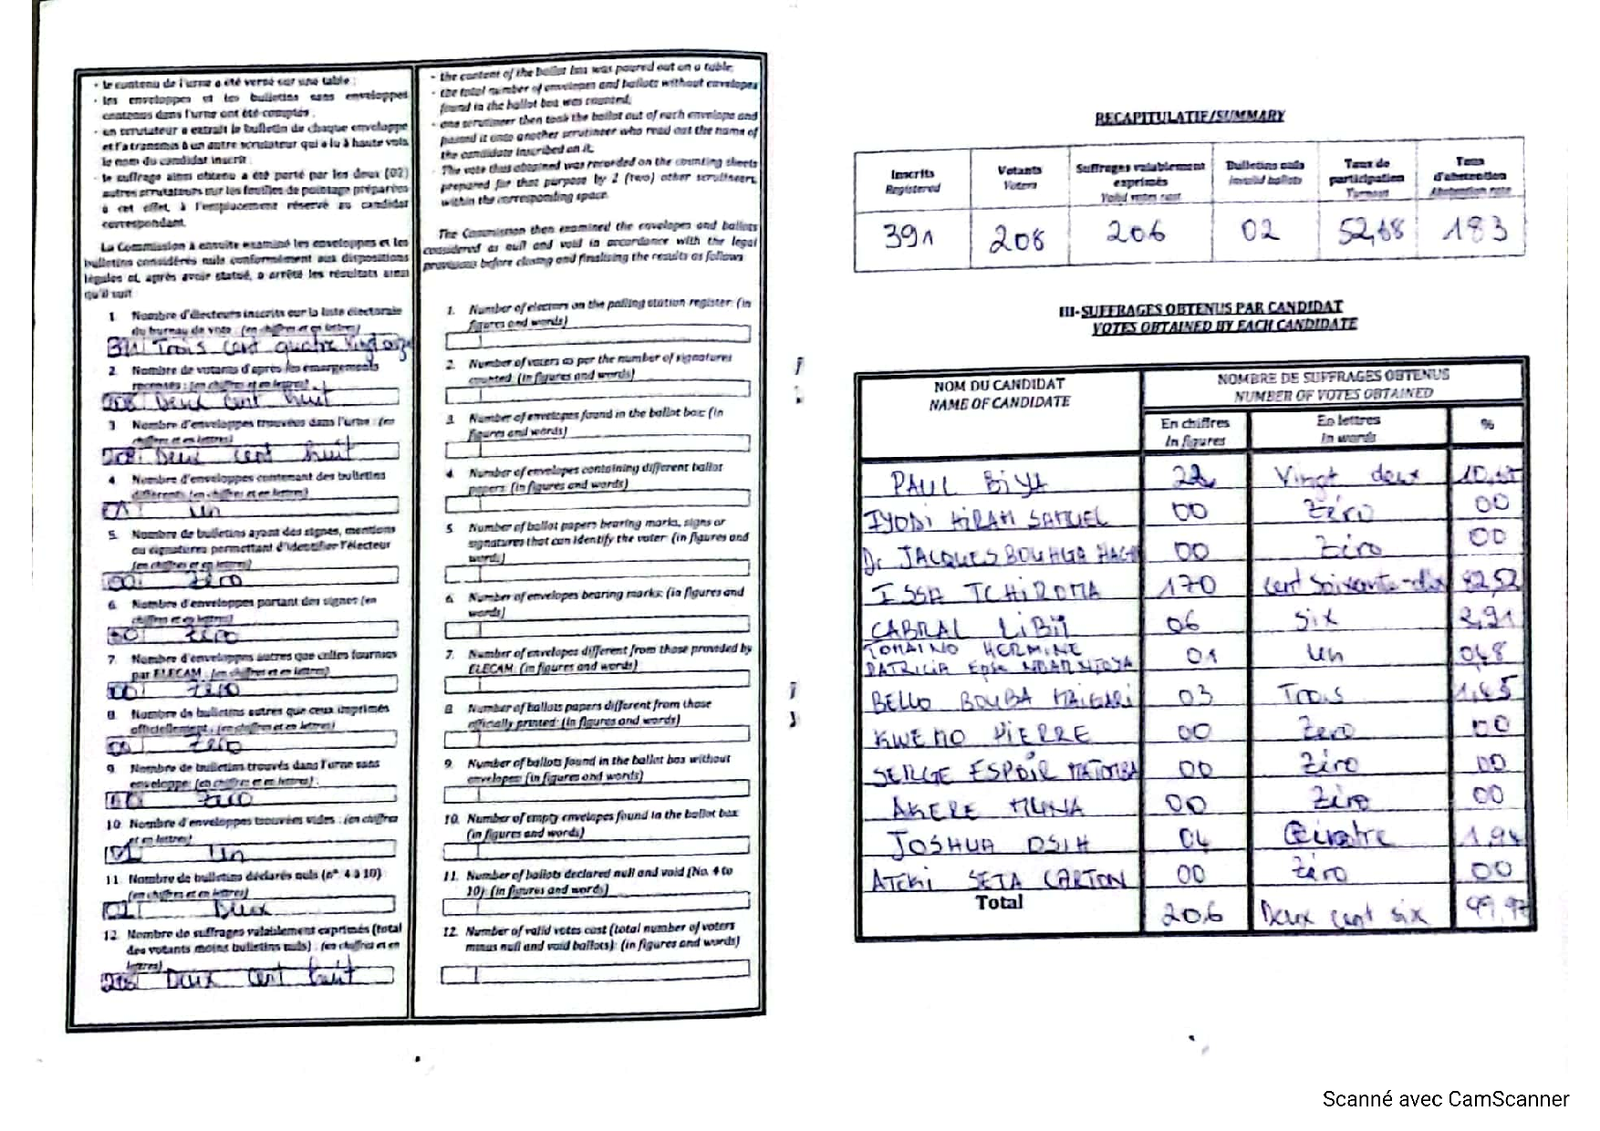 - le contenu de l'urne a été versé sur une table ;
- les enveloppes et les bulletins sans enveloppes
contenus dans l'urne ont été comptés ;
- un scrutateur a extrait le bulletin de chaque enveloppe
et l'a transmis à un autre scrutateur qui a lu à haute voix
le nom du candidat inscrit ;
- le suffrage ainsi obtenu a été porté par les deux (02)
autres scrutateurs sur les feuilles de pointage préparées
à cet effet, à l'emplacement réservé au candidat
correspondant.
La Commission a ensuite examiné les enveloppes et les
bulletins considérés nuls conformément aux dispositions
légales et, après avoir statué, a arrêté les résultats ainsi
qu'il suit :
1. Nombre d'électeurs inscrits sur la liste électorale
du bureau de vote : (en chiffres et en lettres)
391 Trois cent quatre vingt onze
2. Nombre de votants d'après les émargements
recensés : (en chiffres et en lettres)
208 Deux cent huit
3. Nombre d'enveloppes trouvées dans l'urne : (en
chiffres et en lettres)
208 Deux cent huit
4. Nombre d'enveloppes contenant des bulletins
différents (en chiffres et en lettres)
01 Un
5. Nombre de bulletins ayant des signes, mentions
ou signatures permettant d'identifier l'électeur
(en chiffres et en lettres)
00 Zéro
6. Nombre d'enveloppes portant des signes (en
chiffres et en lettres)
00 Zéro
7. Nombre d'enveloppes autres que celles fournies
par ELECAM : (en chiffres et en lettres)
00 Zéro
8. Nombre de bulletins autres que ceux imprimés
officiellement : (en chiffres et en lettres)
00 Zéro
9. Nombre de bulletins trouvés dans l'urne sans
enveloppe: (en chiffres et en lettres)
00 Zéro
10. Nombre d'enveloppes trouvées vides : (en chiffres
et en lettres)
01 Un
11. Nombre de bulletins déclarés nuls (n° 4 à 10) :
(en chiffres et en lettres)
02 Deux
12. Nombre de suffrages valablement exprimés (total
des votants moins bulletins nuls) : (en chiffres et en
lettres)
208 Deux cent huit
- the content of the ballot box was poured out on a table;
- the total number of envelopes and ballots without envelopes
found in the ballot box was counted;
- one scrutineer then took the ballot out of each envelope and
passed it onto another scrutineer who read out the name of
the candidate inscribed on it;
- The vote thus obtained was recorded on the counting sheets
prepared for that purpose by 2 (two) other scrutineers,
within the corresponding space.
The Commission then examined the envelopes and ballots
considered as null and void in accordance with the legal
provisions before closing and finalising the results as follows
1. Number of electors on the polling station register: (in
figures and words)
2. Number of voters as per the number of signatures
counted: (in figures and words)
3. Number of envelopes found in the ballot box: (in
figures and words)
4. Number of envelopes containing different ballot
papers: (in figures and words)
5. Number of ballot papers bearing marks, signs or
signatures that can identify the voter: (in figures and
words)
6. Number of envelopes bearing marks: (in figures and
words)
7. Number of envelopes different from those provided by
ELECAM: (in figures and words)
8. Number of ballots papers different from those
officially printed: (in figures and words)
9. Number of ballots found in the ballot box without
envelopes: (in figures and words)
10. Number of empty envelopes found in the ballot box:
(in figures and words)
11. Number of ballots declared null and void (No. 4 to
10): (in figures and words)
12. Number of valid votes cast (total number of voters
minus null and void ballots): (in figures and words)
RECAPITULATIF/SUMMARY
Inscrits
Registered
Votants
Voters
Suffrages valablement
exprimés
Valid votes cast
Bulletins nuls
Invalid ballots
Taux de
participation
Turnout
Taux
d'abstention
Abstention rate
391 208 206 02 52,68 183
III-SUFFRAGES OBTENUS PAR CANDIDAT
VOTES OBTAINED BY EACH CANDIDATE
NOM DU CANDIDAT
NAME OF CANDIDATE
NOMBRE DE SUFFRAGES OBTENUS
NUMBER OF VOTES OBTAINED
En chiffres
In figures
En lettres
In words
%
PAUL BIYA 22 Vingt deux
IYODI HIRAM SAMUEL 00 Zéro 00
Dr JACQUES BOUHGA HAGB 00 Zéro 00
ISSA TCHIROMA 170 cent soixante-dix 82,52
CABRAL LIBII 06 six 2,91
TOMAINO HERMINE
PATRICIA Epse NDAM NJOYA 01 Un 0,48
BELLO BOUBA MAIGARI 03 Trois 1,45
KWEMO PIERRE 00 Zero 00
SERGE ESPOIR MATOMBA 00 Zéro 00
AKERE MUNA 00 Zéro 00
JOSHUA OSIH 04 Quatre 1,94
ATEKI SETA CAXTON 00 Zéro 00
Total 206 Deux cent six 99,97
Scanné avec CamScanner